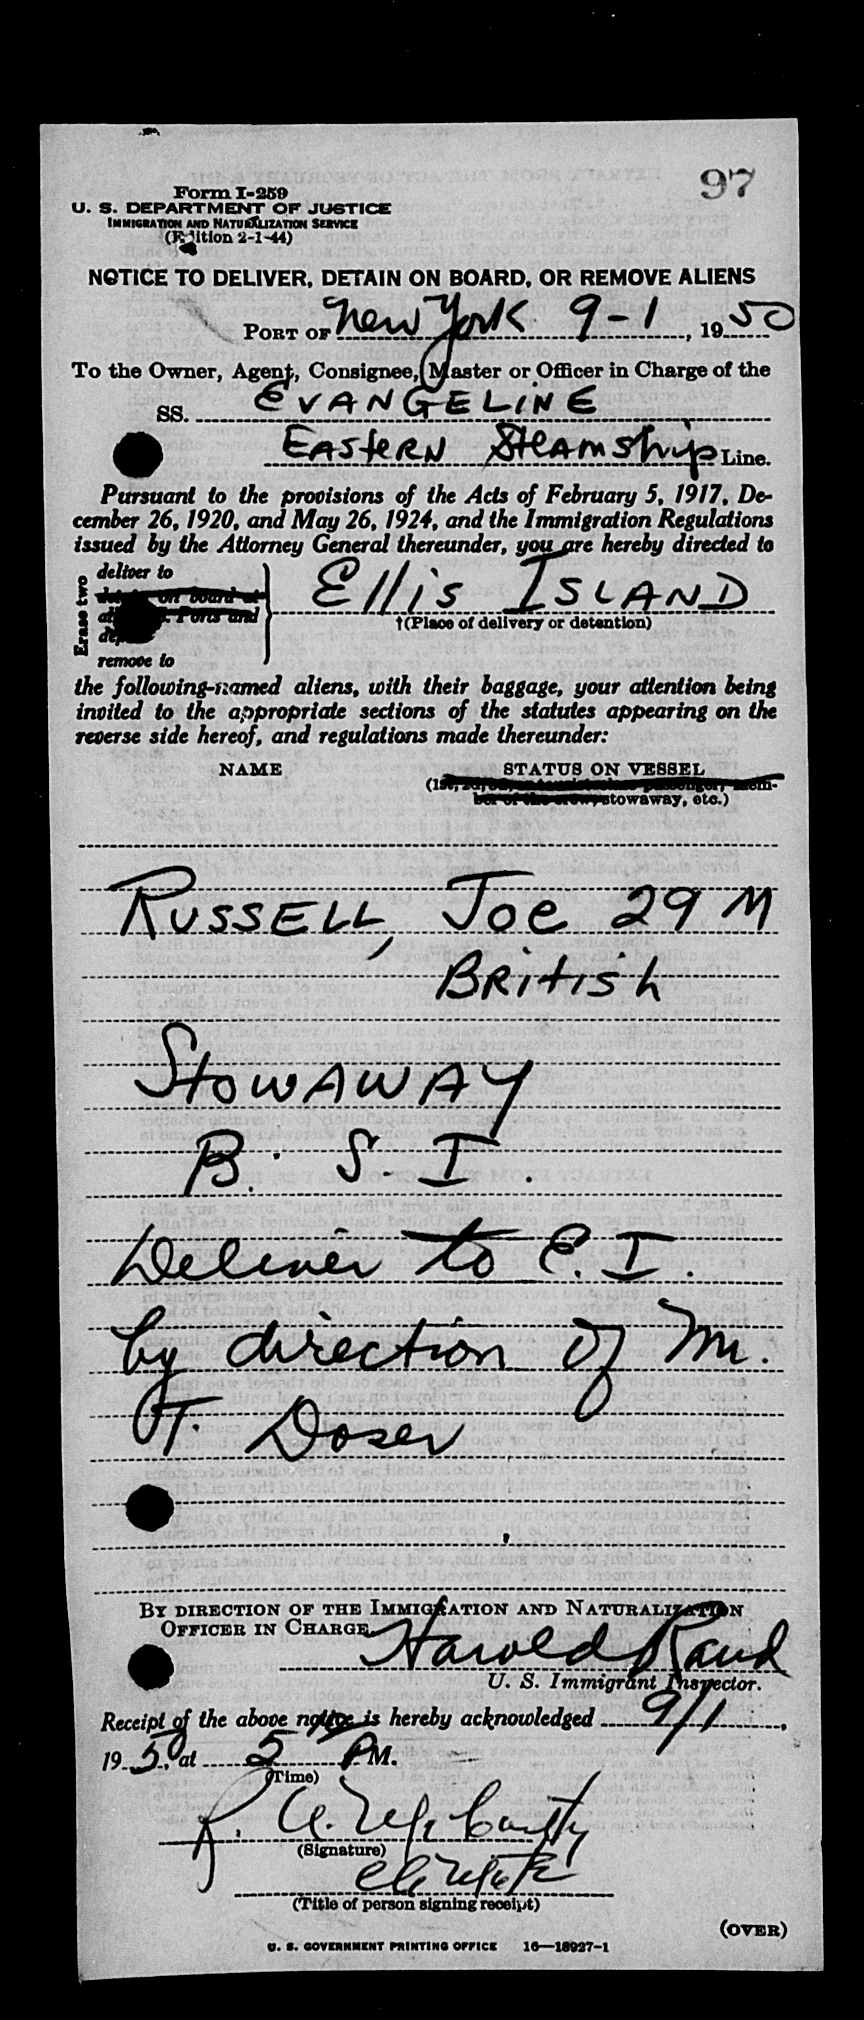 97
Form I-259
U. S. DEPARTMENT OF JUSTICE
IMMIGRATION AND NATURALIZATION SERVICE
(Edition 2-1-44)
NOTICE TO DELIVER, DETAIN ON BOARD, OR REMOVE ALIENS
PORT OF New York 9-1, 1950
To the Owner, Agent, Consignee, Master or Officer in Charge of the
SS. EVANGELINE
EASTERN STEAMShip Line.
Pursuant to the provisions of the Acts of February 5, 1917, De-
cember 26, 1920, and May 26, 1924, and the Immigration Regulations
issued by the Attorney General thereunder, you are hereby directed to
Erase two
deliver to
on board at
Ports and
remove to
Ellis ISLAND
†(Place of delivery or detention)
the following-named aliens, with their baggage, your attention being
invited to the appropriate sections of the statutes appearing on the
reverse side hereof, and regulations made thereunder:
NAME STATUS ON VESSEL
(1st, 2d, passenger, mem-
ber of the crew, stowaway, etc.)
RUSSELL, Joe 29 M
BRitish
STOWAWAY
B. S. I.
Deliver to E. I.
by direction of Mr.
T. Doser
BY DIRECTION OF THE IMMIGRATION AND NATURALIZATION
OFFICER IN CHARGE.
Harold Rand
U. S. Immigrant Inspector.
Receipt of the above notice is hereby acknowledged 9/1,
1950, at 5 PM.
(Time)
R. A. McCarthy
(Signature)
(Title of person signing receipt)
(OVER)
U. S. GOVERNMENT PRINTING OFFICE 16—18927-1